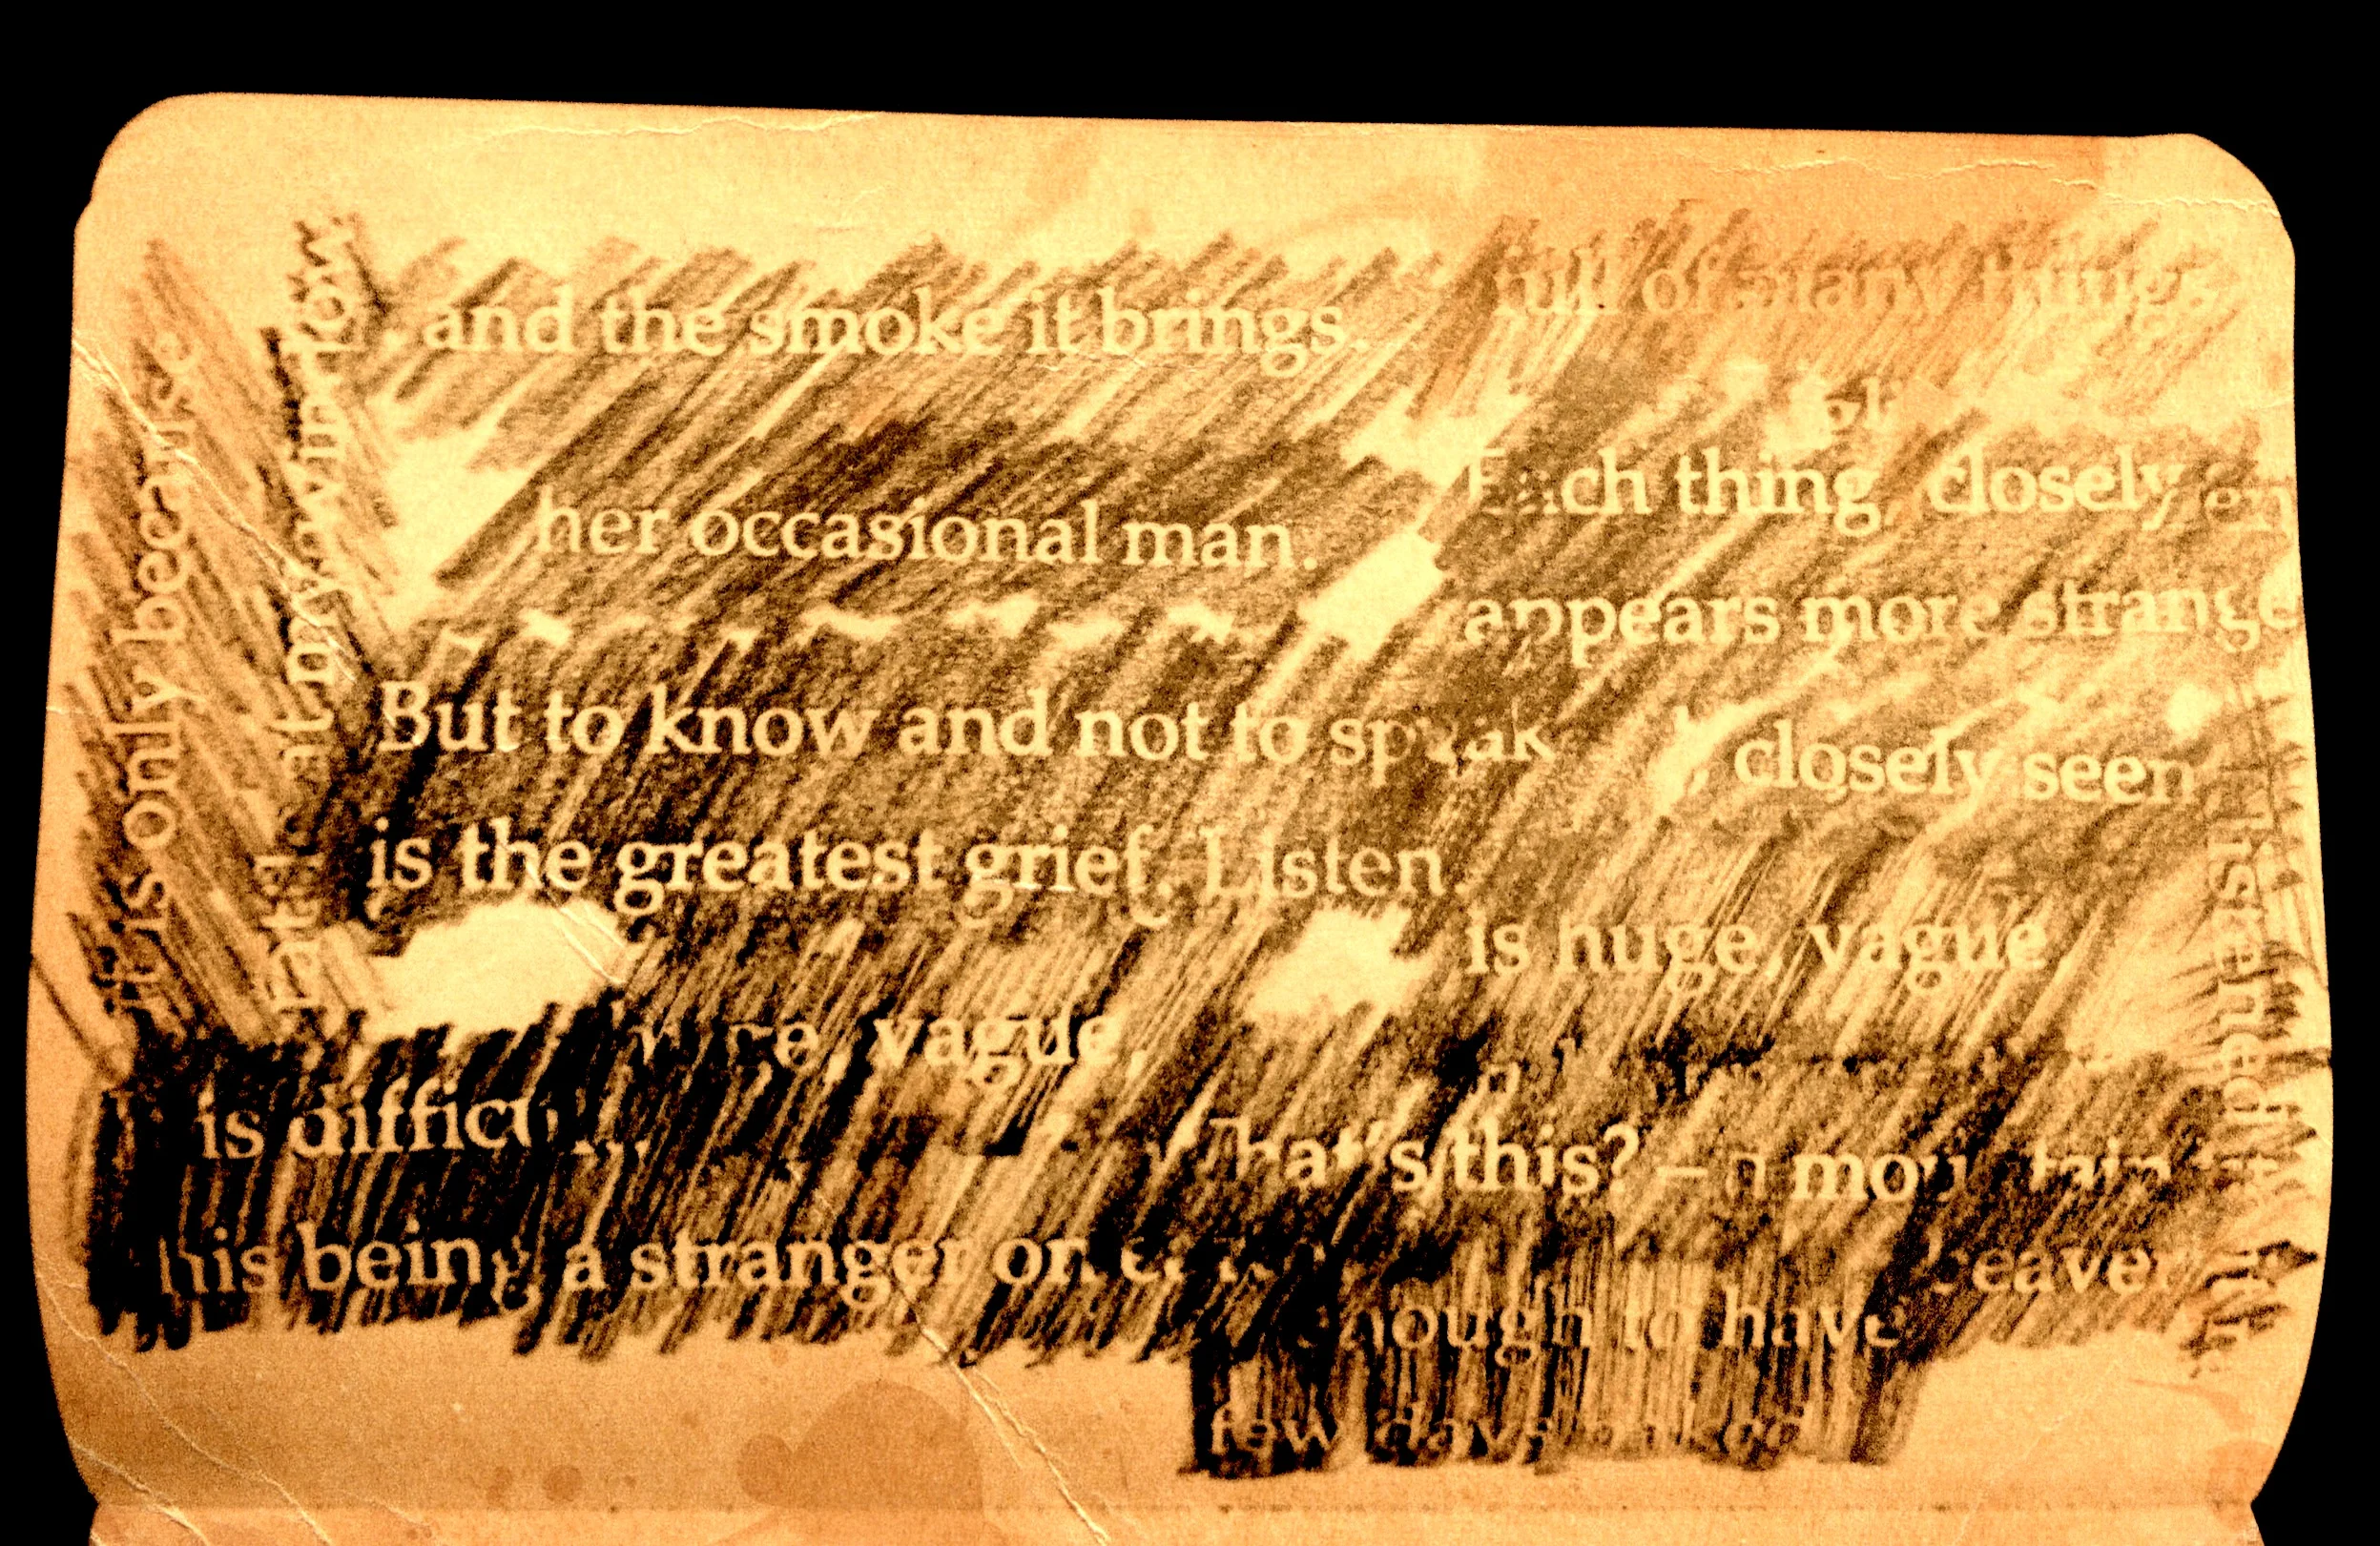 it is only because
at my
and the smoke it brings.
her occasional man.
But to know and not to speak
is the greatest grief. Listen.
vague,
is
his being a stranger on
full of many things
Each thing, closely
appears more strange
, closely seen
is huge, vague
What's this? –
enough to have
few days
listened